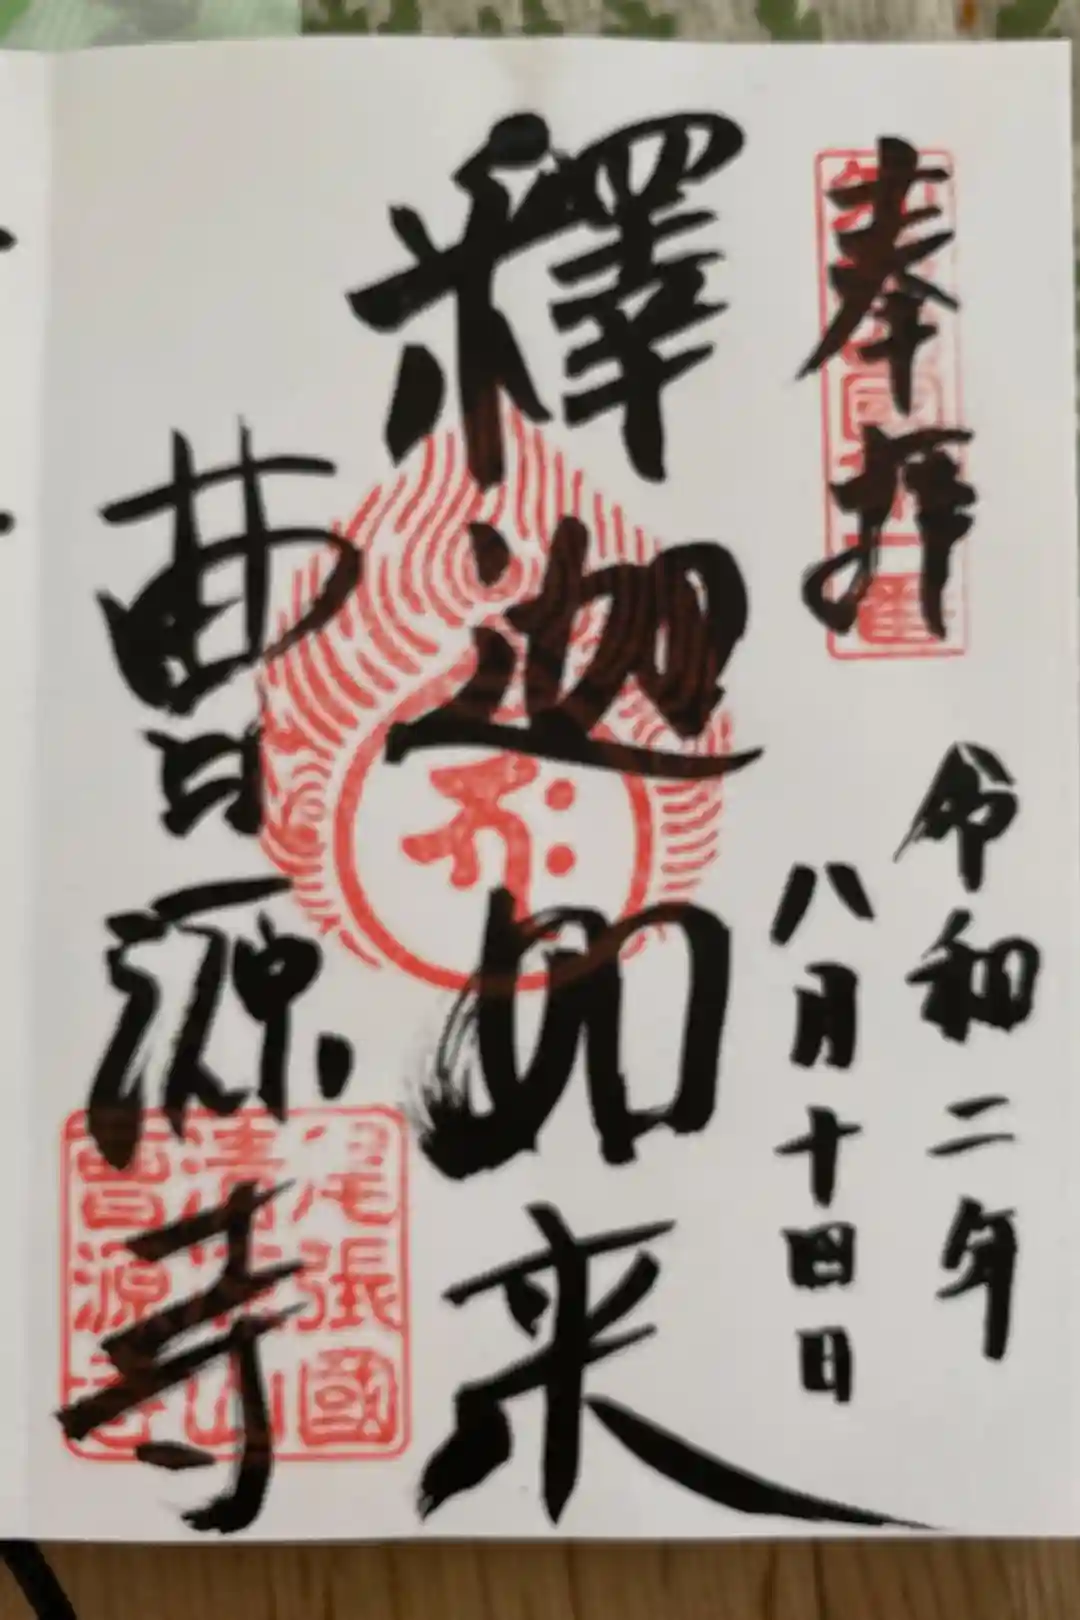 奉拝
令和二年
八月十四日
釋迦如来
曹源寺
尾張國
清涼山
曹源寺